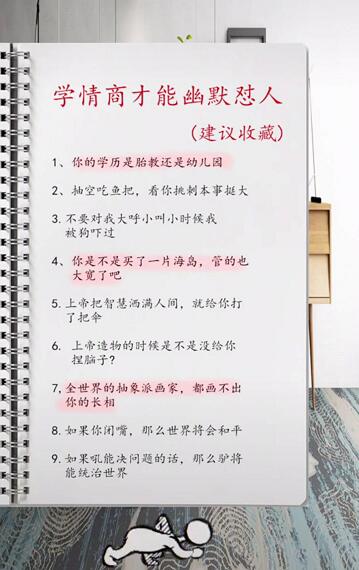 学情商才能幽默怼人
(建议收藏)
1、你的学历是胎教还是幼儿园
2、抽空吃鱼把，看你挑刺本事挺大
3.不要对我大呼小叫小时候我
被狗吓过
4、你是不是买了一片海岛，管的也
大宽了吧
5.上帝把智慧洒满人间，就给你打
了把伞
6. 上帝造物的时候是不是没给你
捏脑子?
7.全世界的抽象派画家，都画不出
你的长相
8.如果你闭嘴，那么世界将会和平
9.如果吼能决问题的话，那么驴将
能统治世界